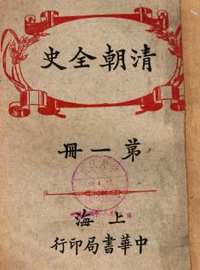 清朝全史
第一冊
上海
中華書局印行